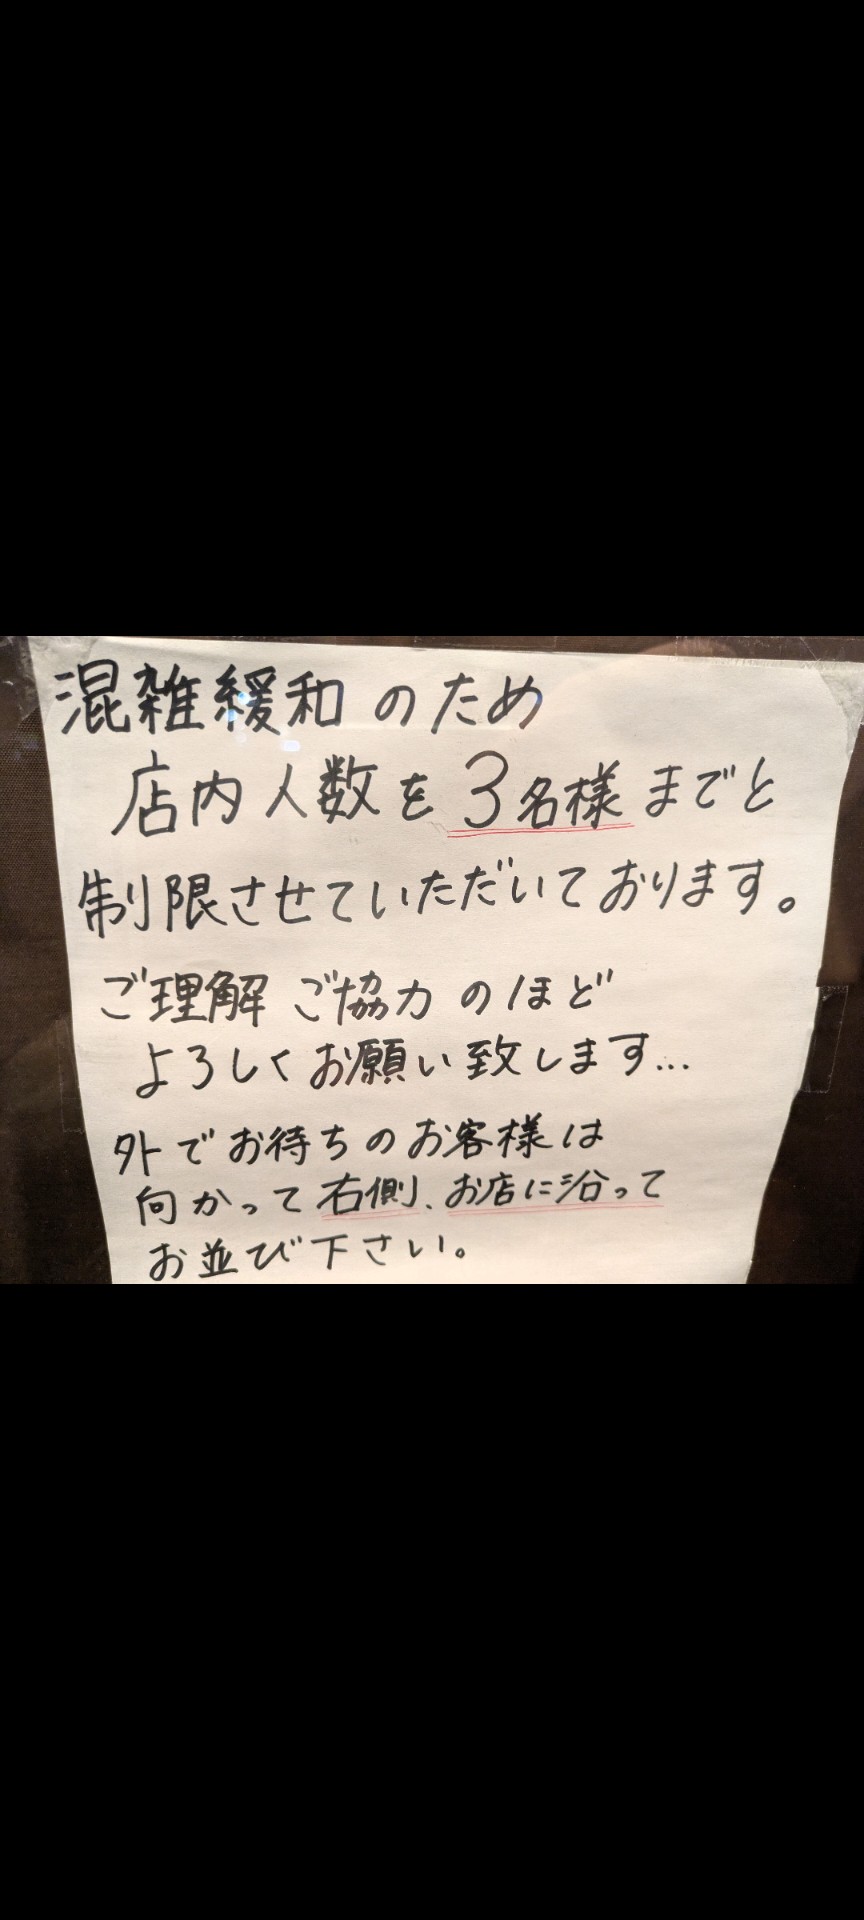 混雑緩和のため
店内人数を3名様までと
制限させていただいております。
ご理解ご協力のほど
よろしくお願い致します...
外でお待ちのお客様は
向かって右側、お店に沿って
お並び下さい。